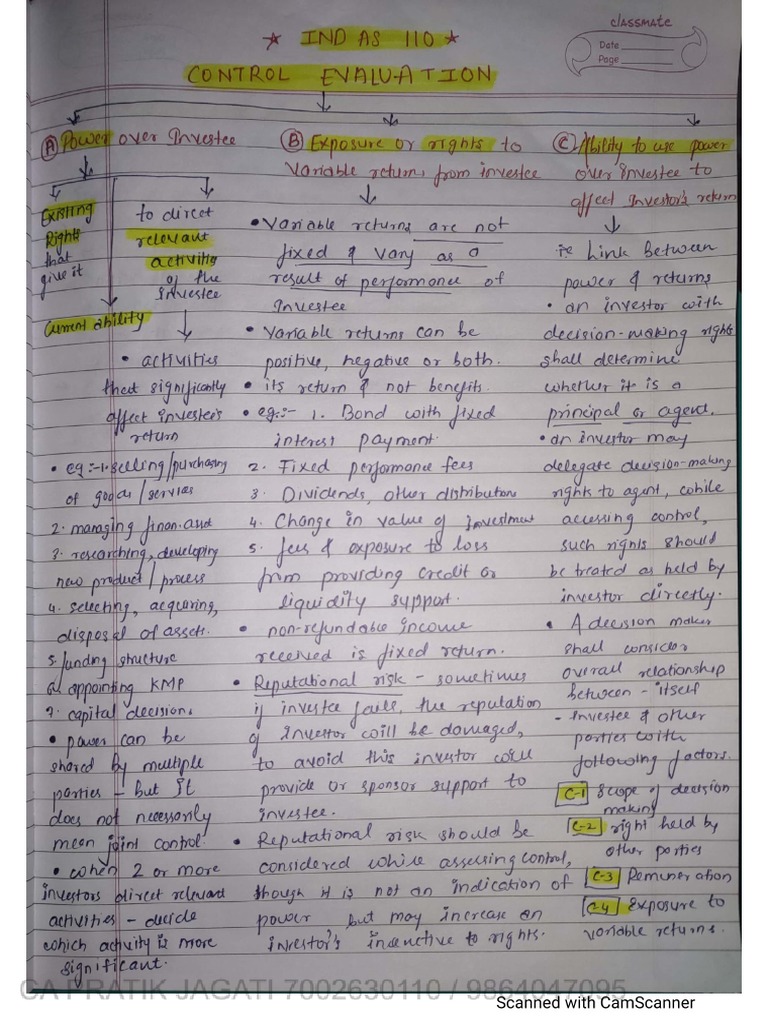 classmate
Date
Page
★ IND AS 110 ★
CONTROL EVALUATION
(A) Power over Investee
Existing
Rights
that
give it
Current ability
to direct
relevant
activities
of the
Investee
• activities
that significantly
affect investee's
return
• eg:-1. selling/purchasing
of goods/services
2. managing finan. asst
3. researching, developing
new product/process
4. selecting, acquiring,
disposal of assets.
5. funding structure
6. appointing KMP
7. capital decisions
• power can be
shared by multiple
parties - but it
does not necessarily
mean joint control.
• when 2 or more
investors direct relevant
activities - decide
which activity is more
significant.
(B) Exposure or rights to
variable returns from investee
• Variable returns are not
fixed & vary as a
result of performance of
Investee
• Variable returns can be
positive, negative or both.
• its return & not benefits.
• eg:- 1. Bond with fixed
interest payment.
2. Fixed performance fees
3. Dividends, other distributions
4. Change in value of investment
5. fees & exposure to loss
from providing credit or
liquidity support.
• non-refundable income
received is fixed return.
• Reputational risk - sometimes
if investee fails, the reputation
of Investor will be damaged,
to avoid this investor will
provide or sponsor support to
investee.
• Reputational risk should be
considered while assessing control,
though it is not an indication of
power but may increase an
investor's incentive to rights.
(C) Ability to use power
over investee to
affect Investor's return
ie Link between
power & returns
• an investor with
decision-making rights
shall determine
whether it is a
principal or agent.
• an investor may
delegate decision-making
rights to agent, while
accessing control,
such rights should
be treated as held by
investor directly.
• A decision maker
shall consider
overall relationship
between - itself
- Investee & other
parties with
following factors.
C-1 Scope of decision
making
C-2 right held by
other parties
C-3 Remuneration
C-4 Exposure to
variable returns.
CA PRATIK JAGATI 7002630110 / 9864047095
Scanned with CamScanner